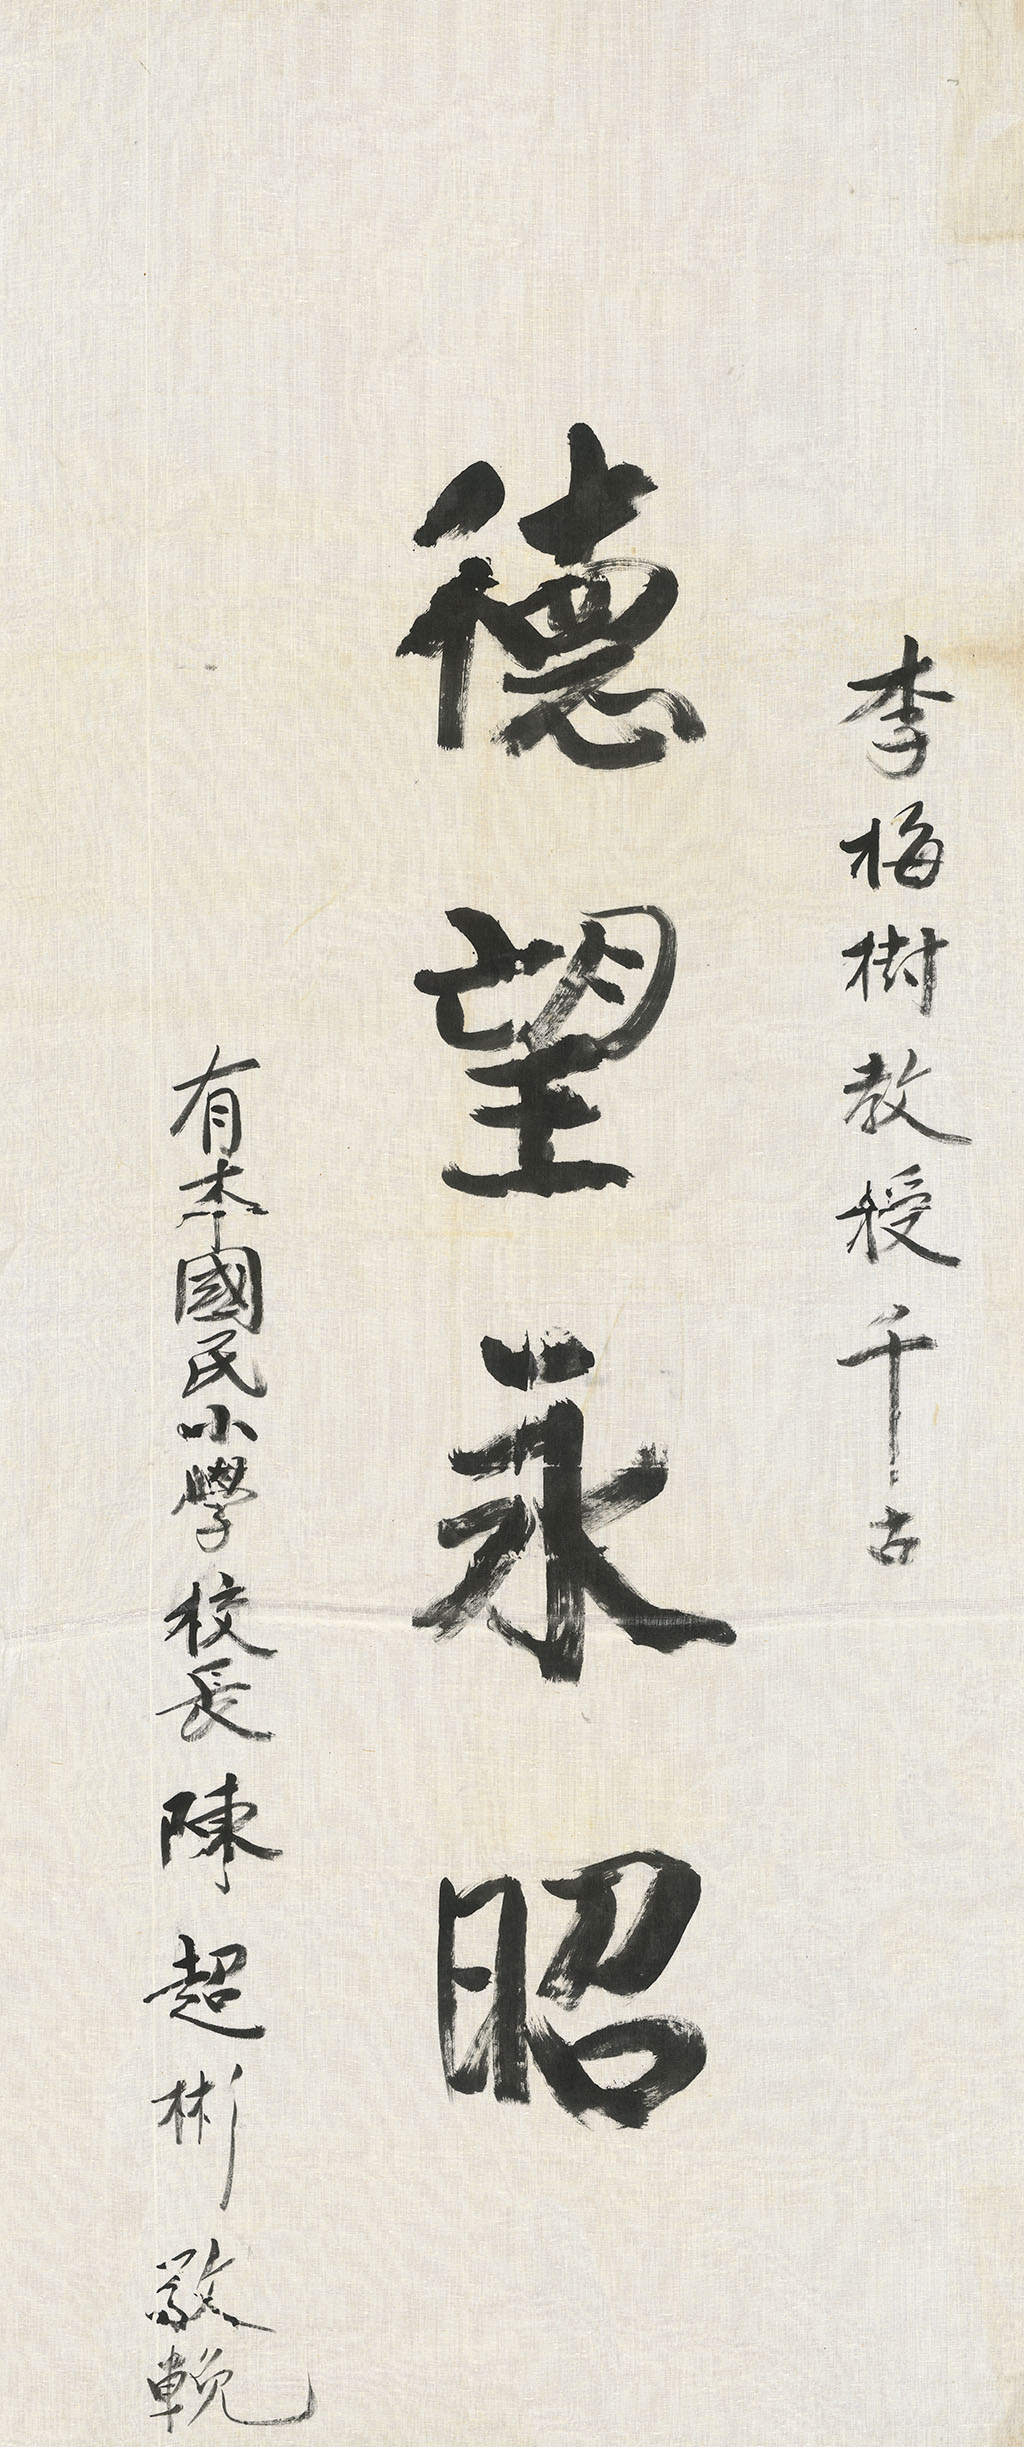 李梅樹教授千古
德望永昭
有木國民小學校長陳超彬敬輓